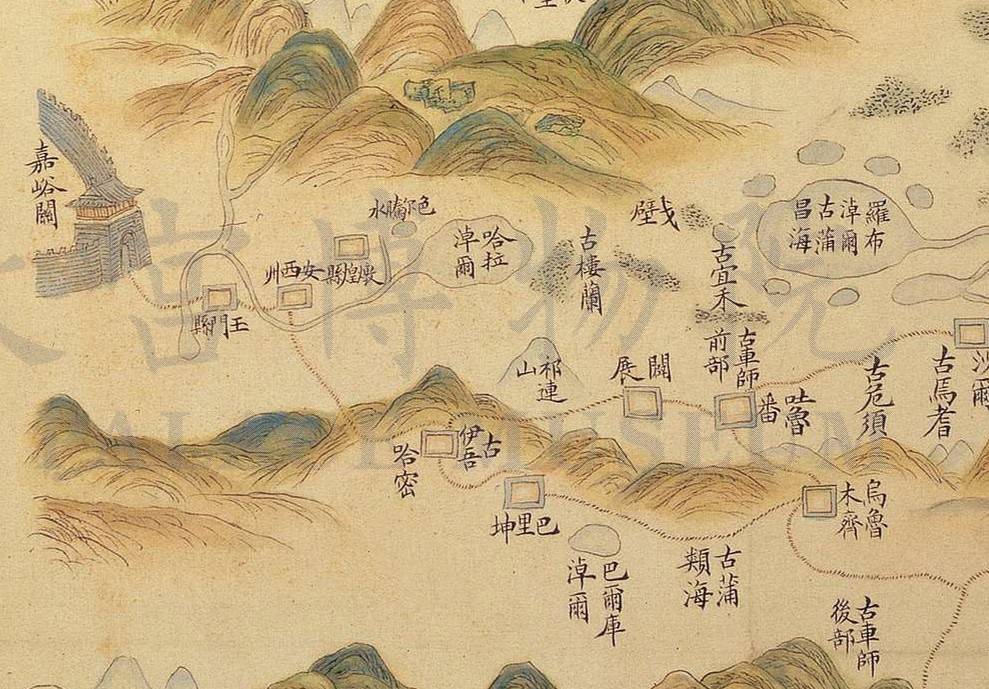 嘉峪關
色尔騰水
敦煌縣
安西州
玉門縣
哈拉
淖爾
古樓蘭
戈壁
古宜禾
羅布
淖爾
古蒲
昌海
古車師
前部
闢展
吐魯
番
祁連
山
古危須
古焉耆
古
伊吾
哈密
巴里坤
烏魯
木齊
巴爾庫
淖爾
古蒲
類海
古車師
後部
宮博物院
MUSEUM